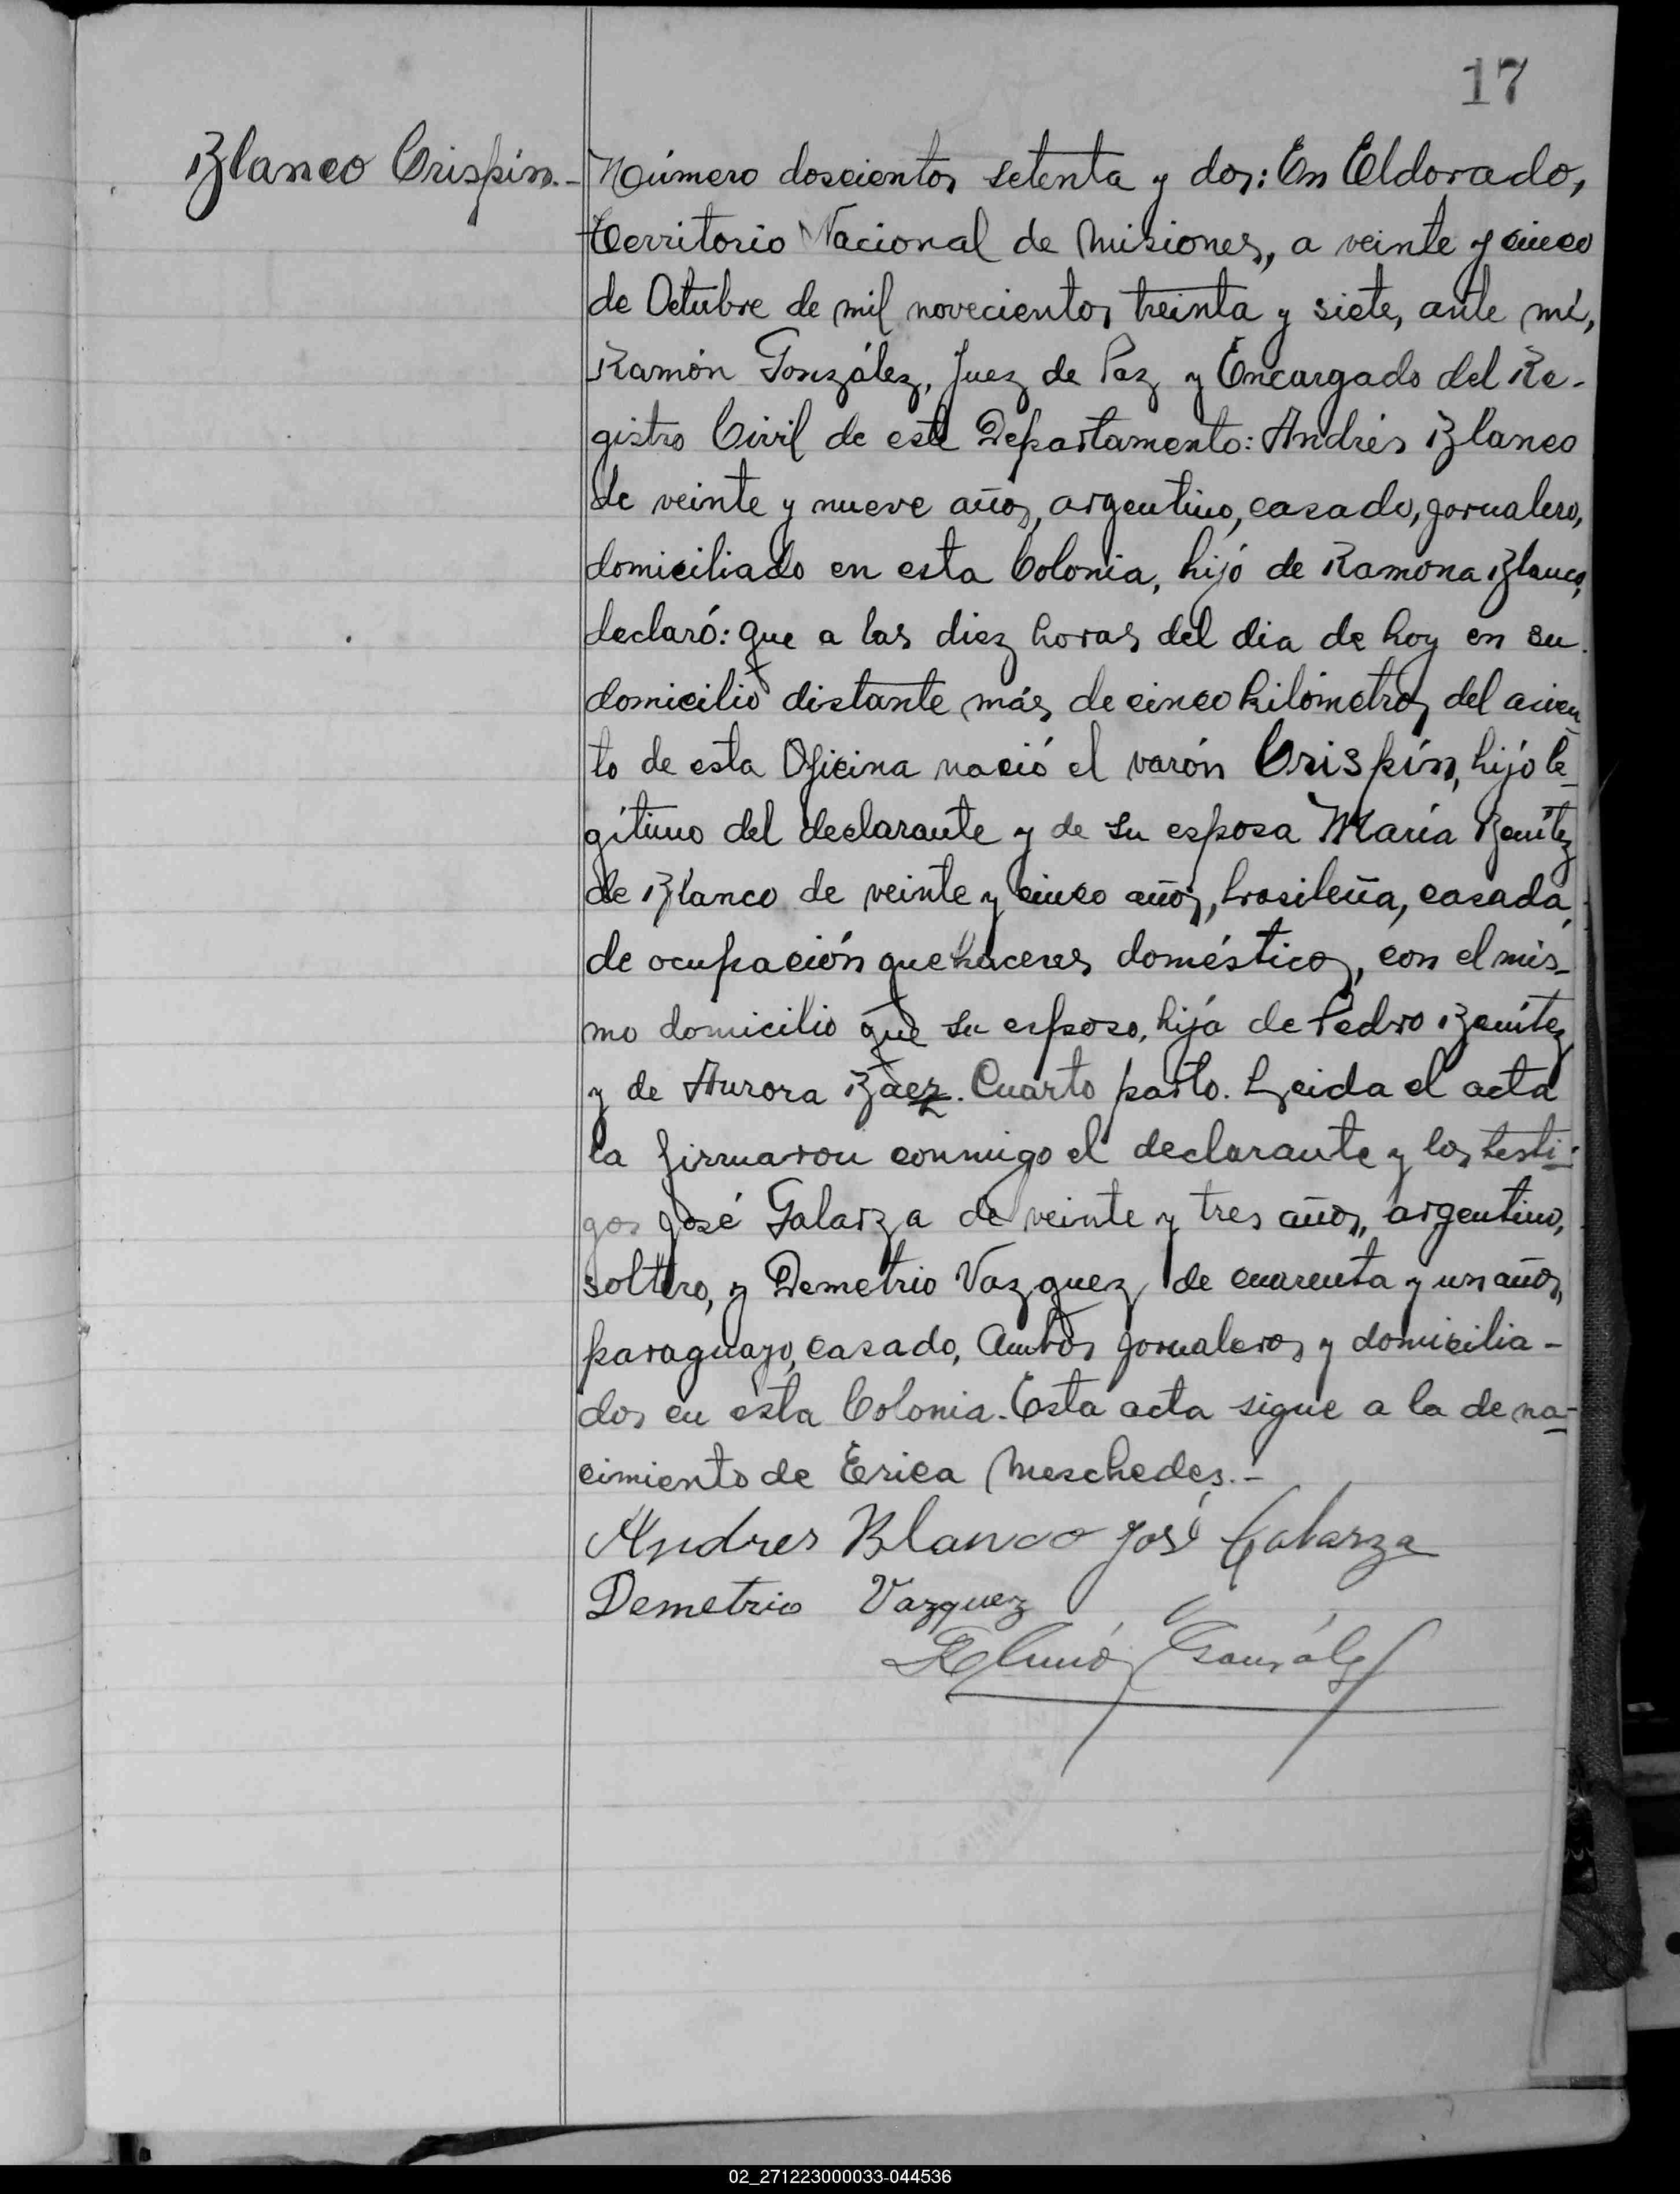 17
Blanco Crispín.-
Número doscientos setenta y dos: En Eldorado,
Territorio Nacional de Misiones, a veinte y cinco
de Octubre de mil novecientos treinta y siete, ante mí,
Ramón González, Juez de Paz y Encargado del Re-
gistro Civil de este Departamento: Andrés Blanco
de veinte y nueve años, argentino, casado, jornalero,
domiciliado en esta Colonia, hijo de Ramona Blanco,
declaró: que a las diez horas del dia de hoy en su
domicilio distante más de cinco kilómetros del asien-
to de esta Oficina nació el varón Crispín, hijo le-
gítimo del declarante y de su esposa María Benítez
de Blanco de veinte y cinco años, brasileña, casada,
de ocupación quehaceres domésticos, con el mis-
mo domicilio que su esposo, hija de Pedro Benítez
y de Aurora Báez. Cuarto parto. Leida el acta
la firmaron conmigo el declarante y los testi-
gos José Galarza de veinte y tres años, argentino,
soltero, y Demetrio Vazquez de cuarenta y un años,
paraguayo, casado, ambos jornaleros y domicilia-
dos en esta Colonia. Esta acta sigue a la de na-
cimiento de Erica Meschedes.-
Andres Blanco José Galarza
Demetrio Vazquez
Ramón González
02_271223000033-044536